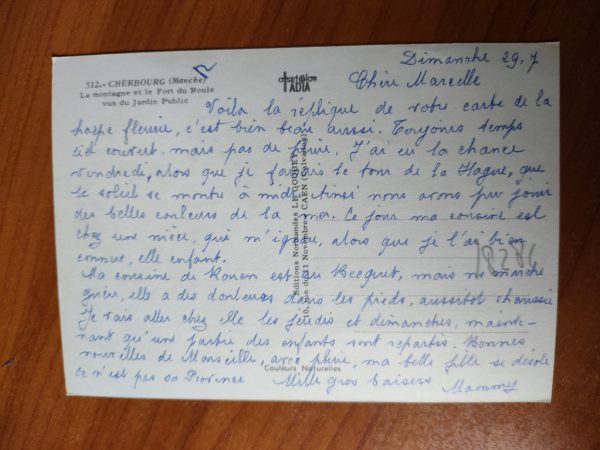 Dimanche 29.7
512.- CHERBOURG (Manche)
La montagne et le Fort du Roule
vus du Jardin Public
ADIA
Chère Marcelle
Voilà la réplique de votre carte de la
fleurie, c'est bien beau aussi. Toujours temps
ciel couvert, mais pas de pluie. J'ai eu la chance
vendredi, alors que je faisais le tour de la Hague, que
le soleil se montre à midi. Ainsi nous avons pu jouir
des belles couleurs de la mer. Ce jour ma cousine est
chez une nièce, qui m'ignore, alors que je l'ai bien
connue, elle enfant.
Ma cousine de Rouen est au Becquet, mais ne marche
guère, elle a des douleurs dans les pieds, aussitôt chaussée
Je vais aller chez elle les jeudis et dimanches, mainte-
nant qu'une partie des enfants sont repartis. Bonnes
nouvelles de Marseille, avec pluie, ma belle fille se désole
ce n'est pas sa Provence
Mille gros baisers
Mammy
Editions Normandes LE GOUBEY
10, rue du 11 Novembre - CAEN (Calvados)
Couleurs Naturelles